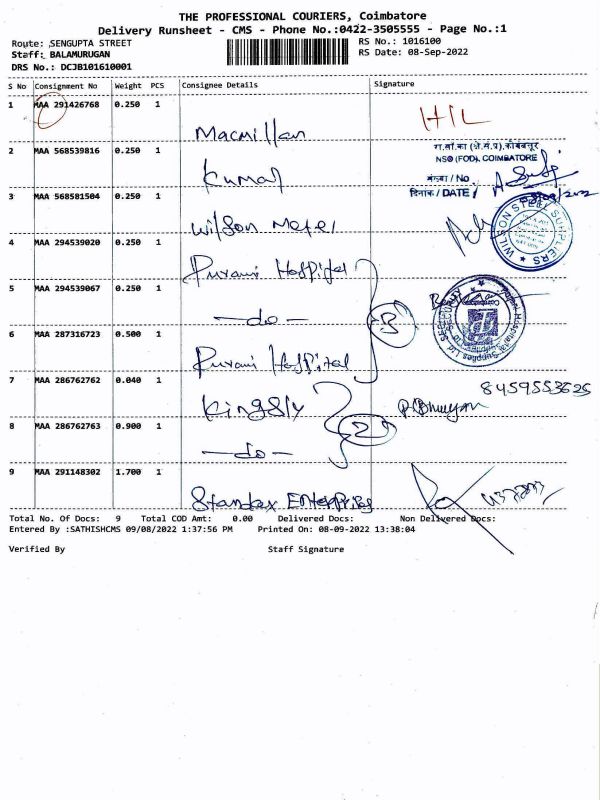 THE PROFESSIONAL COURIERS, Coimbatore
Delivery Runsheet - CMS - Phone No.:0422-3505555 - Page No.:1
Route: SENGUPTA STREET
RS No.: 1016100
Staff: BALAMURUGAN
RS Date: 08-Sep-2022
DRS No.: DCJB101610001
S No Consignment No Weight PCS Consignee Details Signature
1 MAA 291426768 0.250 1
Macmillan
2 MAA 568539816 0.250 1
रा.सां.का (क्षे.सं.प्र), कोयंबत्तूर
NSO (FOD), COIMBATORE
Kumar
संख्या / No
दिनांक / DATE
3 MAA 568581504 0.250 1
Wilson
WILSON STEEL SUPPLIERS
4 MAA 294539020 0.250 1
Purani Hospital
5 MAA 294539067 0.250 1
-do-
3
6 MAA 287316723 0.500 1
Purani Hospital
7 MAA 286762762 0.040 1
Kingsly
8459553625
8 MAA 286762763 0.900 1
2
-do-
9 MAA 291148302 1.700 1
Standex Enterprises
Total No. Of Docs: 9 Total COD Amt: 0.00 Delivered Docs: Non Delivered Docs:
Entered By :SATHISHCMS 09/08/2022 1:37:56 PM Printed On: 08-09-2022 13:38:04
Verified By Staff Signature